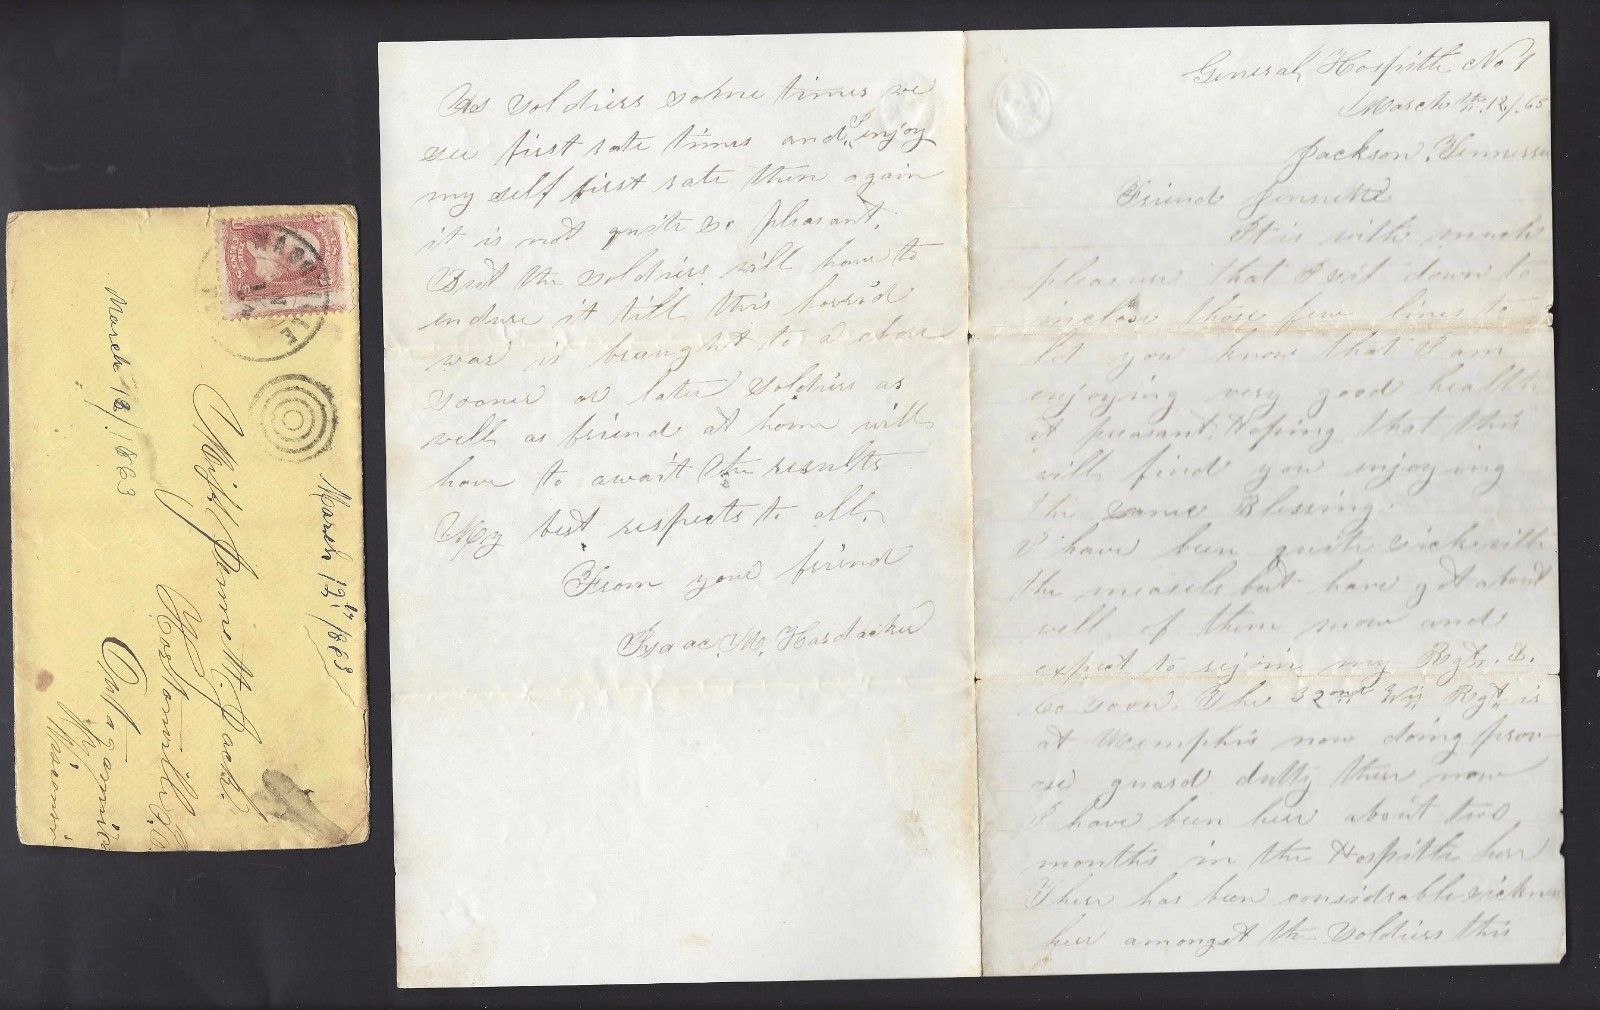 General Hospittle No 1
March th. 12. / . 63
Jackson, Tennessee
Friend Jennette
It is with much
pleasure that I sit down to
inclose those few lines to
let you know that I am
enjoying very good health
at pleasant. Hoping that this
will find you enjoying
the same Blessing.
I have been quite sick with
the measels but have got about
well of them now and
expect to rejoin my Regt. D.
Co soon. The 32ond Wis Regt is
at Memphis now doing prov-
ose guard dutty there now
I have been here about two
months in the Hospittle here
There has been considrable sickness
here amongst the soldiers this
As soldiers some times we
see first rate times and I enjoy
my self first rate then again
it is not quite so pleasant.
But the soldiers will have to
endure it till this horrid
war is braught to a close
sooner or later soldiers as
well as friend at home will
have to await the results
My best respects to all.
From your friend
Isaac. M. Hardacker
March 12/1863
March 12th/1863
Miss Jennett. Jack.
Hortonvill P.O.
Outagamie
Wisconsin